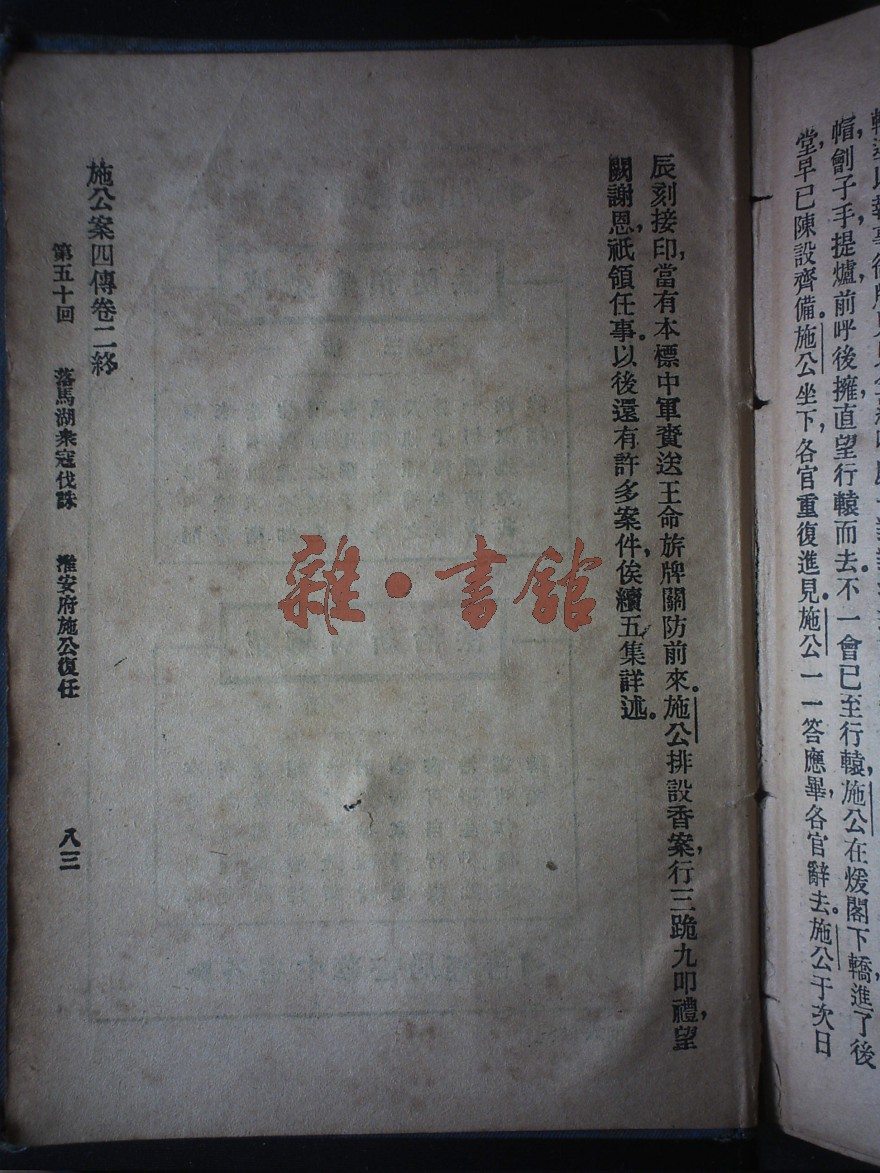 帽，劊子手提爐，前呼後擁，直望行轅而去。不一會已至行轅，施公在煖閣下轎，進了後
堂，早已陳設齊備。施公坐下，各官重復進見。施公一一答應畢，各官辭去。施公于次日
辰刻接印，當有本標中軍賫送王命旂牌關防前來。施公排設香案，行三跪九叩禮，望
闕謝恩，祇領任事。以後還有許多案件，俟續五集詳述。
施公案四傳卷二終
第五十回 落馬湖衆寇伐誅 淮安府施公復任 八三
雜·書館